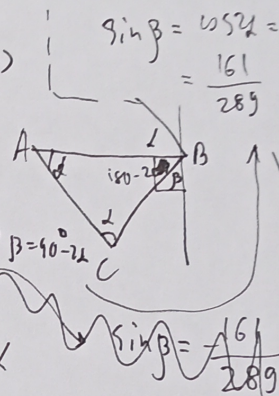 )
sin β = cos 2α =
= 161/289
A
L
B
α
180-2α
β
α
C
β=90°-2α
sin β = -161/289